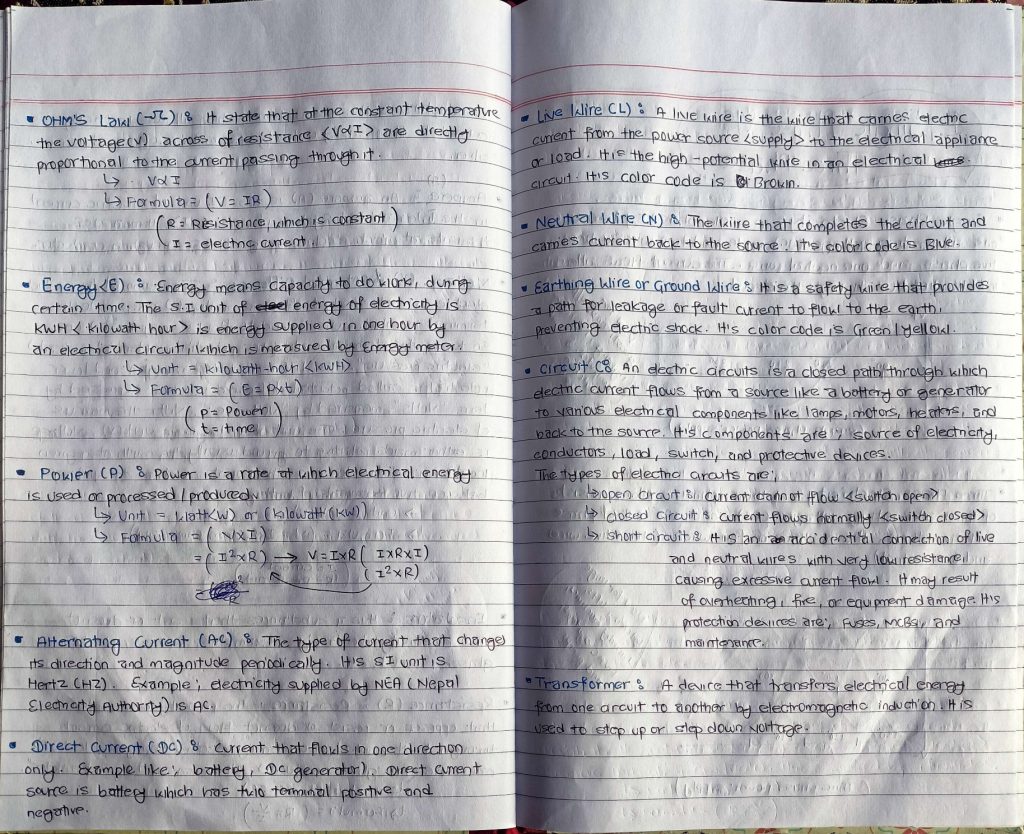 • OHM'S Law (-Ω) : It state that at the constant temperature
the voltage(v) across of resistance <V∝I> are directly
proportional to the current passing through it.
↳ V∝I
↳ Formula = (V = IR)
(R = Resistance, which is constant)
I = electric current.
• Energy<E) : Energy means capacity to do work, during
certain time. The S.I unit of energy of electricity is
KWH < kilowatt hour > is energy supplied in one hour by
an electrical circuit, which is measured by Energy meter.
↳ Unit = kilowatt-hour <kWH>
↳ Formula = (E = P×t)
(P = Power)
t = time
• Power (P) : Power is a rate at which electrical energy
is used or processed / produced.
↳ Unit = Watt<W) or (kilowatt (kW))
↳ Formula = (V×I)
= (I²×R) → V = I×R (I×R×I)
(I²×R)
• Alternating Current (AC) : The type of current that change
its direction and magnitude periodically. It's SI unit is
Hertz (HZ). Example; electricity supplied by NEA (Nepal
Electricity Authority) is AC.
• Direct Current (DC) : Current that flows in one direction
only. Example like; battery, DC generator). Direct current
source is battery which has two terminal positive and
negative.
• Live Wire (L) : A live wire is the wire that carries electric
current from the power source <supply> to the electrical appliance
or load. It is the high-potential wire in an electrical
circuit. It's color code is Brown.
• Neutral Wire (N) : The wire that completes the circuit and
carries current back to the source. It's color code is Blue.
• Earthing Wire or Ground Wire : It is a safety wire that provides
a path for leakage or fault current to flow to the earth,
preventing electric shock. It's color code is Green/yellow.
• Circuit C: An electric circuits is a closed path through which
electric current flows from a source like a battery or generator
to various electrical components like lamps, motors, heaters, and
back to the source. It's components are; source of electricity,
conductors, load, switch, and protective devices.
The types of electric circuits are;
↳ open circuit : current cannot flow <switch open>
↳ closed circuit : current flows normally <switch closed>
↳ short circuit : It is an accidential connection of live
and neutral wires with very low resistance,
causing excessive current flow. It may result
of overheating, fire, or equipment damage. It's
protection devices are; Fuses, MCBs, and
maintenance.
• Transformer : A device that transfers electrical energy
from one circuit to another by electromagnetic induction. It is
used to step up or step down voltage.